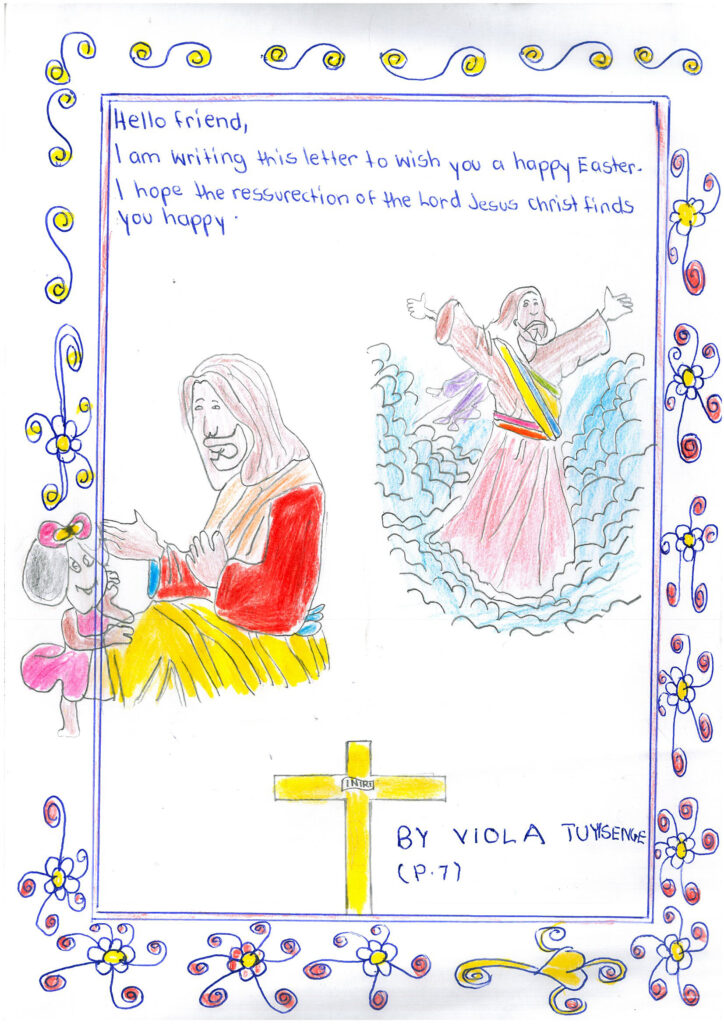 Hello friend,
I am writing this letter to wish you a happy Easter.
I hope the ressurection of the Lord Jesus Christ finds
you happy.
INIRI
BY VIOLA TUYISENGE
(P.7)